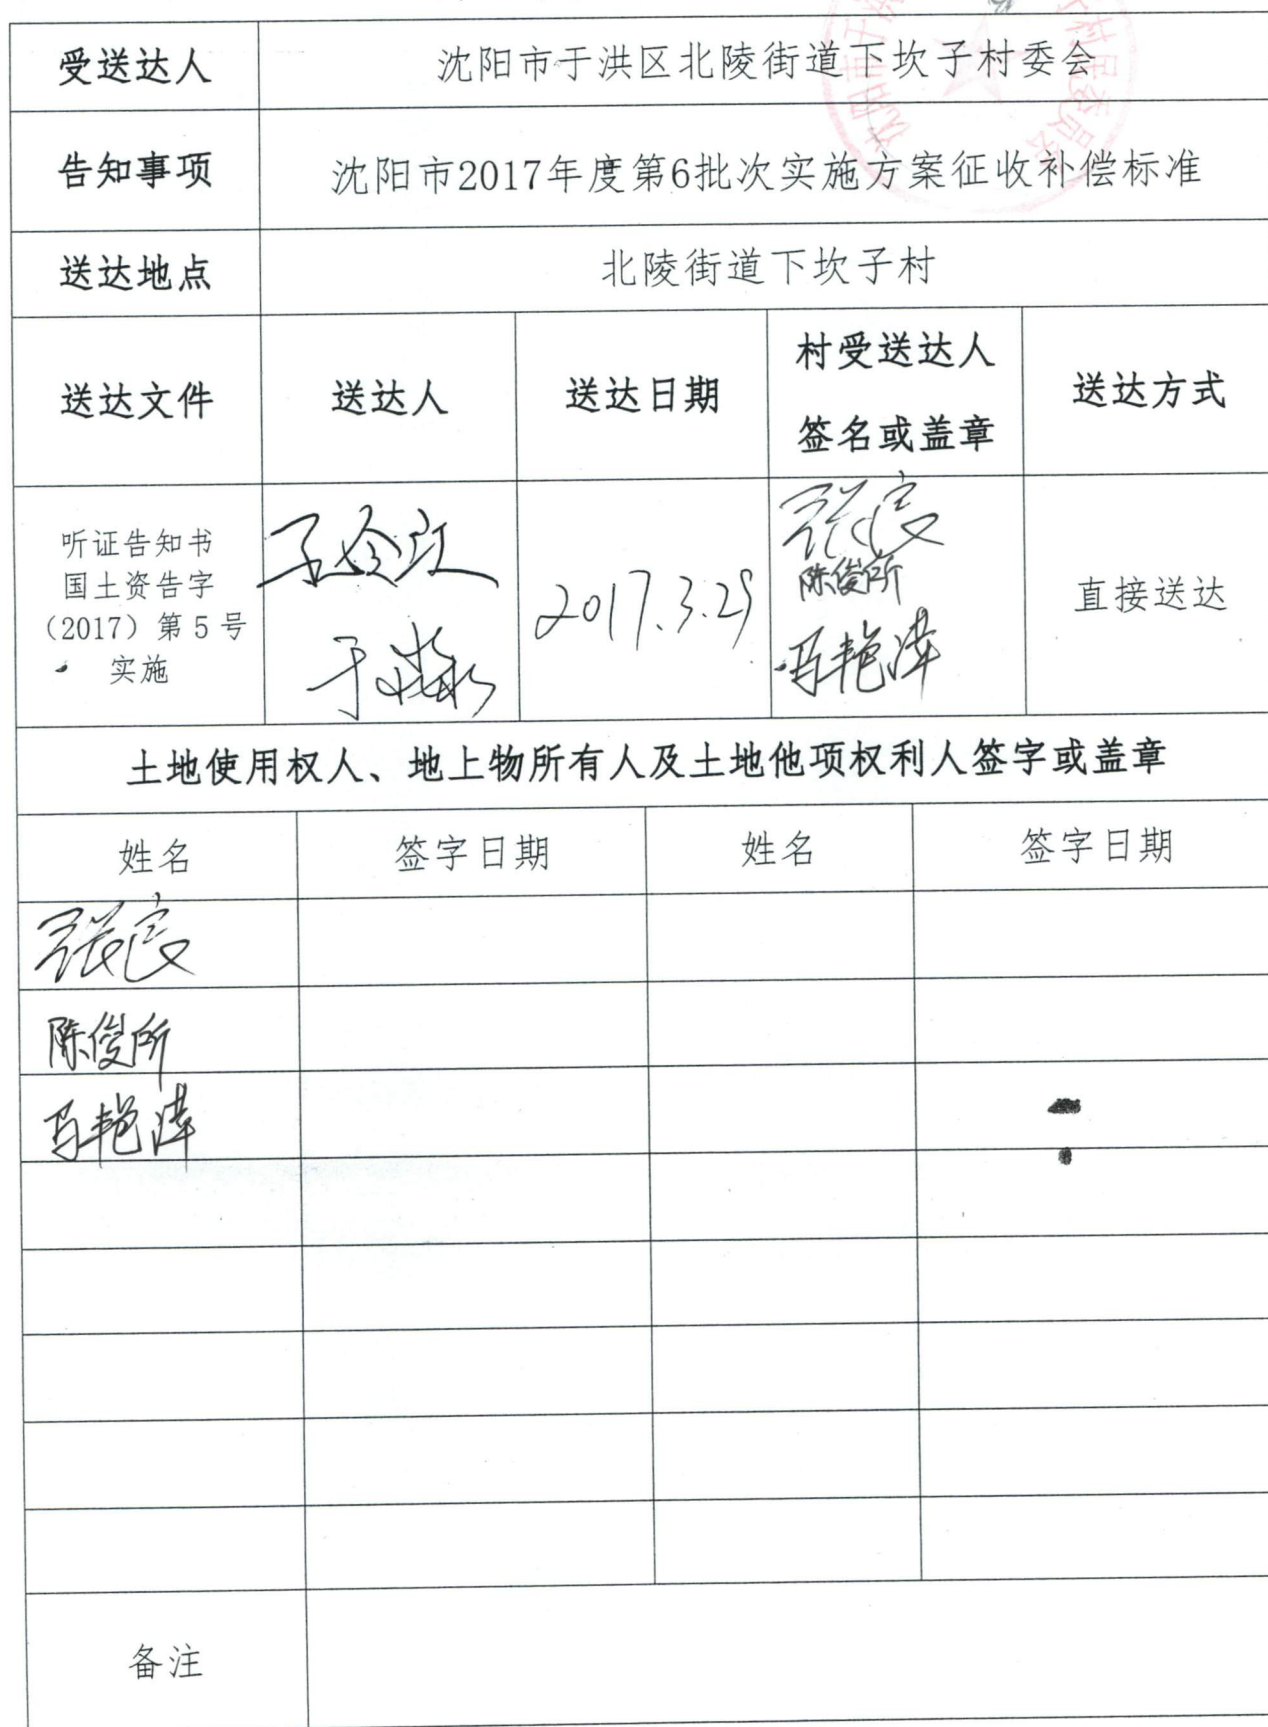 受送达人
沈阳市于洪区北陵街道下坎子村委会
告知事项
沈阳市2017年度第6批次实施方案征收补偿标准
送达地点
北陵街道下坎子村
送达文件
送达人
送达日期
村受送达人
签名或盖章
送达方式
听证告知书
国土资告字
（2017）第5号
实施
2017.3.29
张良
陈俊所
马艳萍
直接送达
土地使用权人、地上物所有人及土地他项权利人签字或盖章
姓名
签字日期
姓名
签字日期
张良
陈俊所
备注